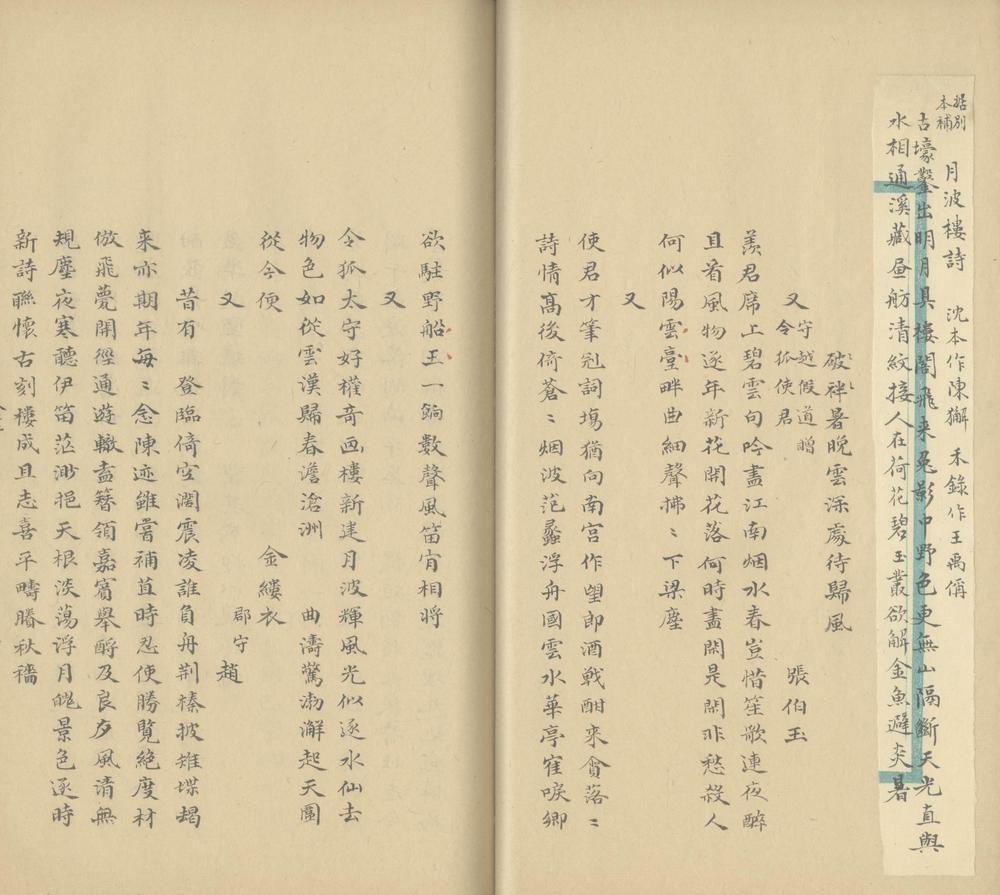 据別
本補
月波樓詩 沈本作陳獬 禾錄作王禹偁
古壕鑿出明月具樓閣飛来兔影中野色更無山隔斷天光直與
水相通溪藏昼舫清紋接人在荷花碧玉叢欲解金魚避炎暑
破袢暑晚雲深處待歸風
又 守越假道贈 令狐使君 張伯玉
羨君席上碧雲句吟盡江南烟水春豈惜笙歌連夜醉
且看風物逐年新花開花落何時盡閑是閑非愁殺人
何似陽雲臺畔曲細聲拂〻下梁塵
又
使君才筆冠詞塲猶向南宫作望郎酒戦酣来貪落〻
詩情髙後倚蒼〻烟波范蠡浮舟國雲水華亭隺唳鄉
欲駐野船王一餉數聲風笛宵相将
又
令狐太守好權竒画樓新建月波輝風光似逐水仙去
物色如從雲漢歸春澹滄洲 曲濤驚渤澥起天圍
從今便 金縷衣
又 郡守趙
昔有 登臨倚空濶震凌誰負舟荆榛披雉堞朅
来亦期年每〻念陳迹雖嘗補苴時忍使勝覽絶度材
倣飛甍開徑通遊轍盍簪領嘉賓舉酹及良夕風清無
規塵夜寒聽伊笛茫渺挹天根淡蕩浮月魄景色逐時
新詩聮懐古刻樓成且志喜平疇騰秋穡